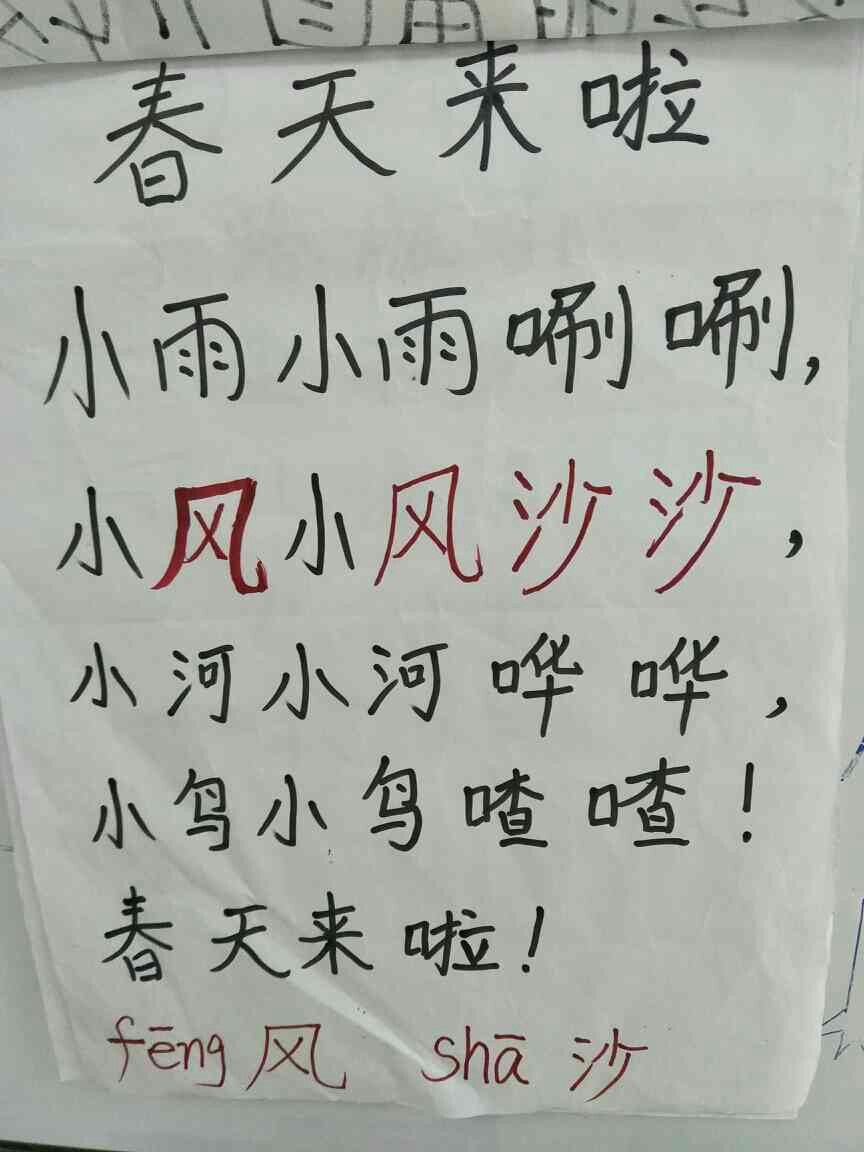 春天来啦
小雨小雨唰唰,
小风小风沙沙,
小河小河哗哗,
小鸟小鸟喳喳!
春天来啦!
fēng 风 shā 沙